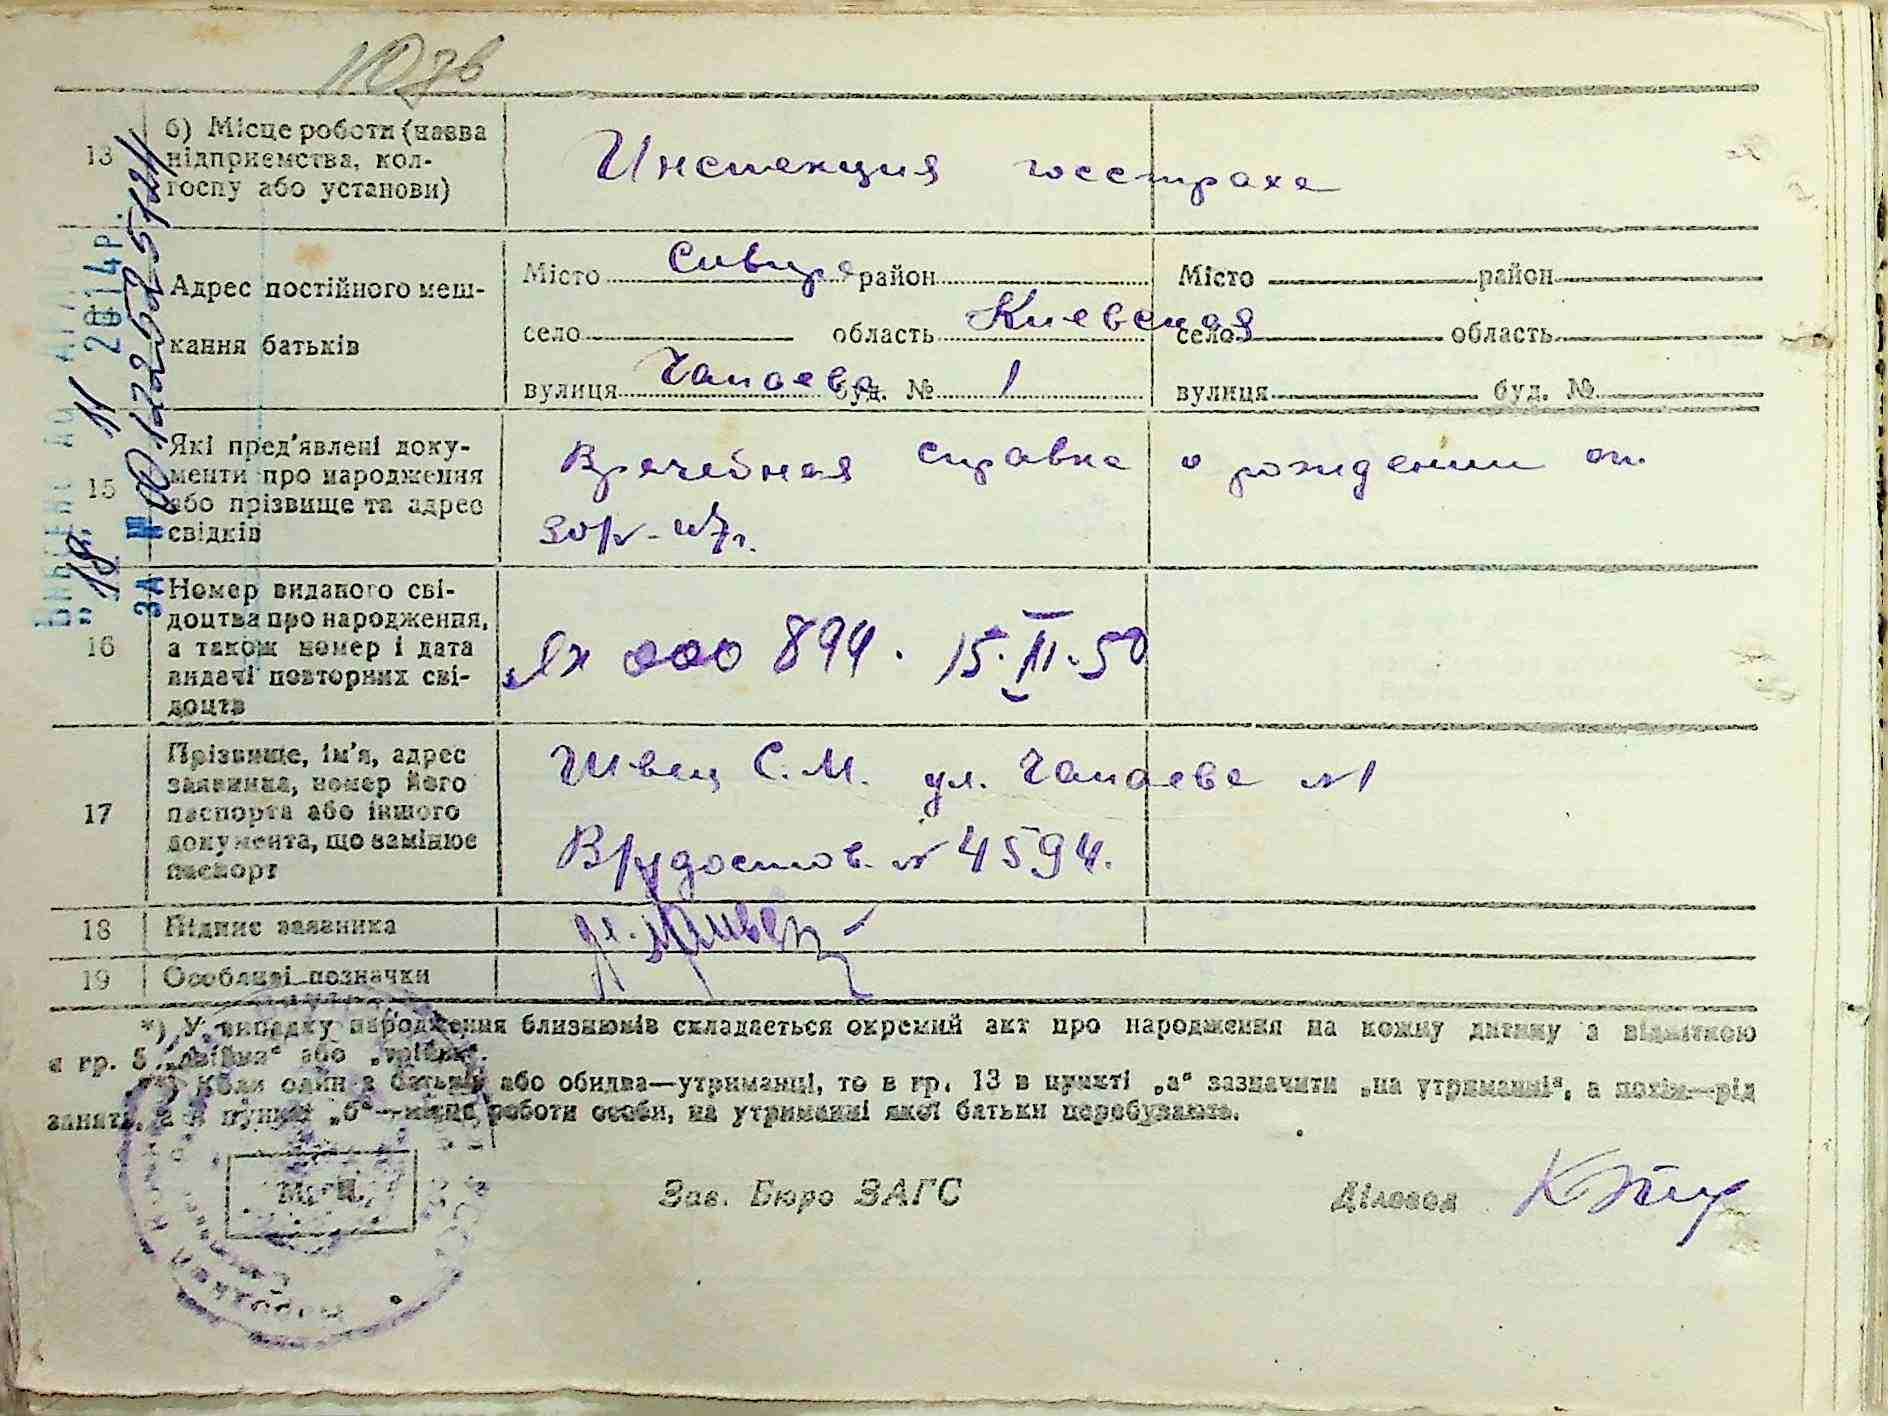 13
б) Місце роботи (назва
підприємства, кол-
госпу або установи)
Инспекция госстраха
Адрес постійного меш-
кання батьків
Місто Сквира район
село область Киевская
вулиця Чапаева буд. № 1
Місто район
село область
вулиця буд. №
15
Які пред'явлені доку-
менти про народження
або прізвище та адрес
свідків
Врачебная справка о рождении от
16
Номер виданого сві-
доцтва про народження,
а також номер і дата
видачі повторних сві-
доцтв
ЯХ 000 894. 15.III.50
17
Прізвище, ім'я, адрес
заявника, номер його
паспорта або іншого
документа, що замінює
паспорт
Швец С.М. ул. Чапаева №1
Вр удостов. № 4594.
18
Підпис заявника
Швец
19
Особливі позначки
*) У випадку народження близнюків складається окремий акт про народження на кожну дитину з відміткою
в гр. 5 „двійня" або „трійня".
**) Коли один з батьків або обидва—утриманці, то в гр. 13 в пункті „а" зазначити „на утриманні", а потім—рід
занять, а в пункті „б"—місце роботи особи, на утриманні якої батьки перебувають.
М. П.
Зав. Бюро ЗАГС
Діловод
"18" 11 2014р.
ЗА № 00122525124